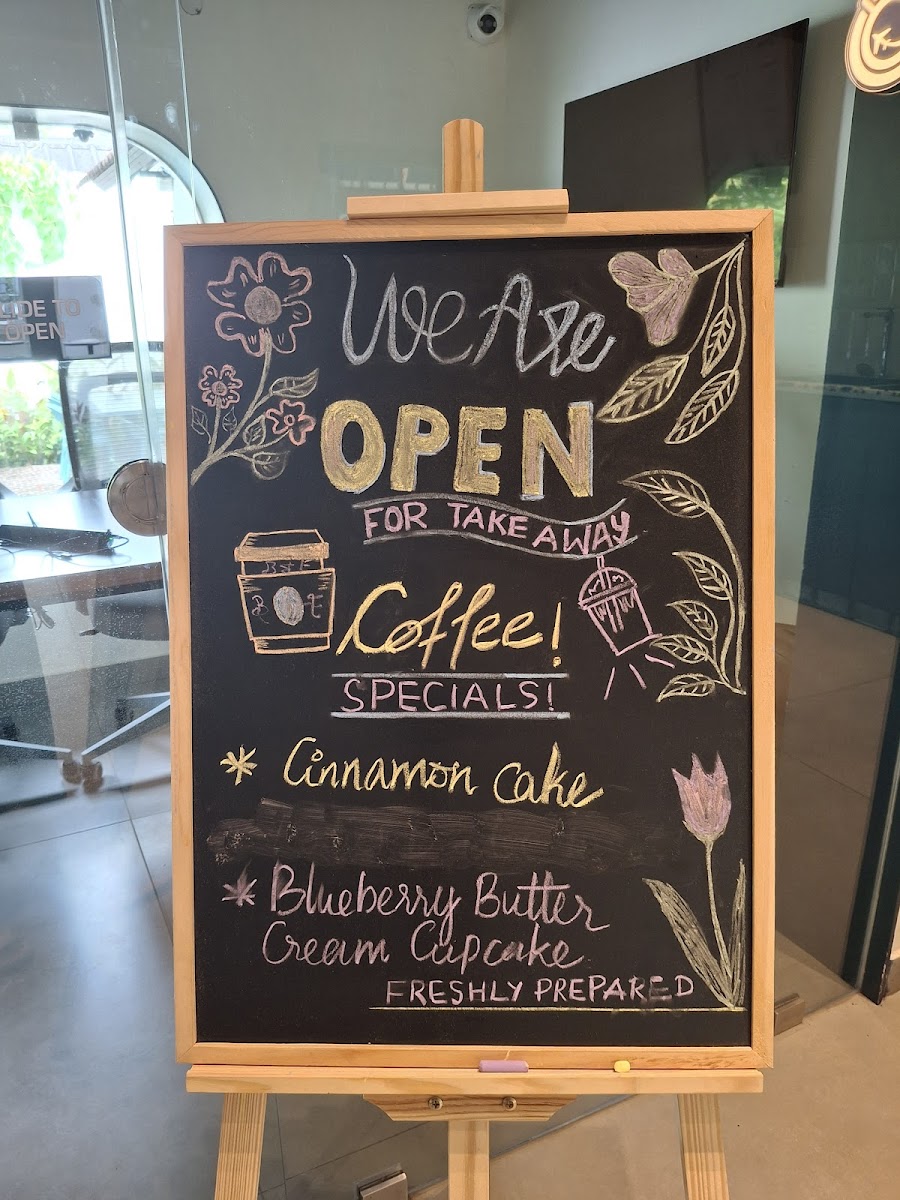 We Are
OPEN
FOR TAKE AWAY
Coffee!
SPECIALS!
* Cinnamon Cake
* Blueberry Butter
Cream Cupcake
FRESHLY PREPARED
DE TO
OPEN